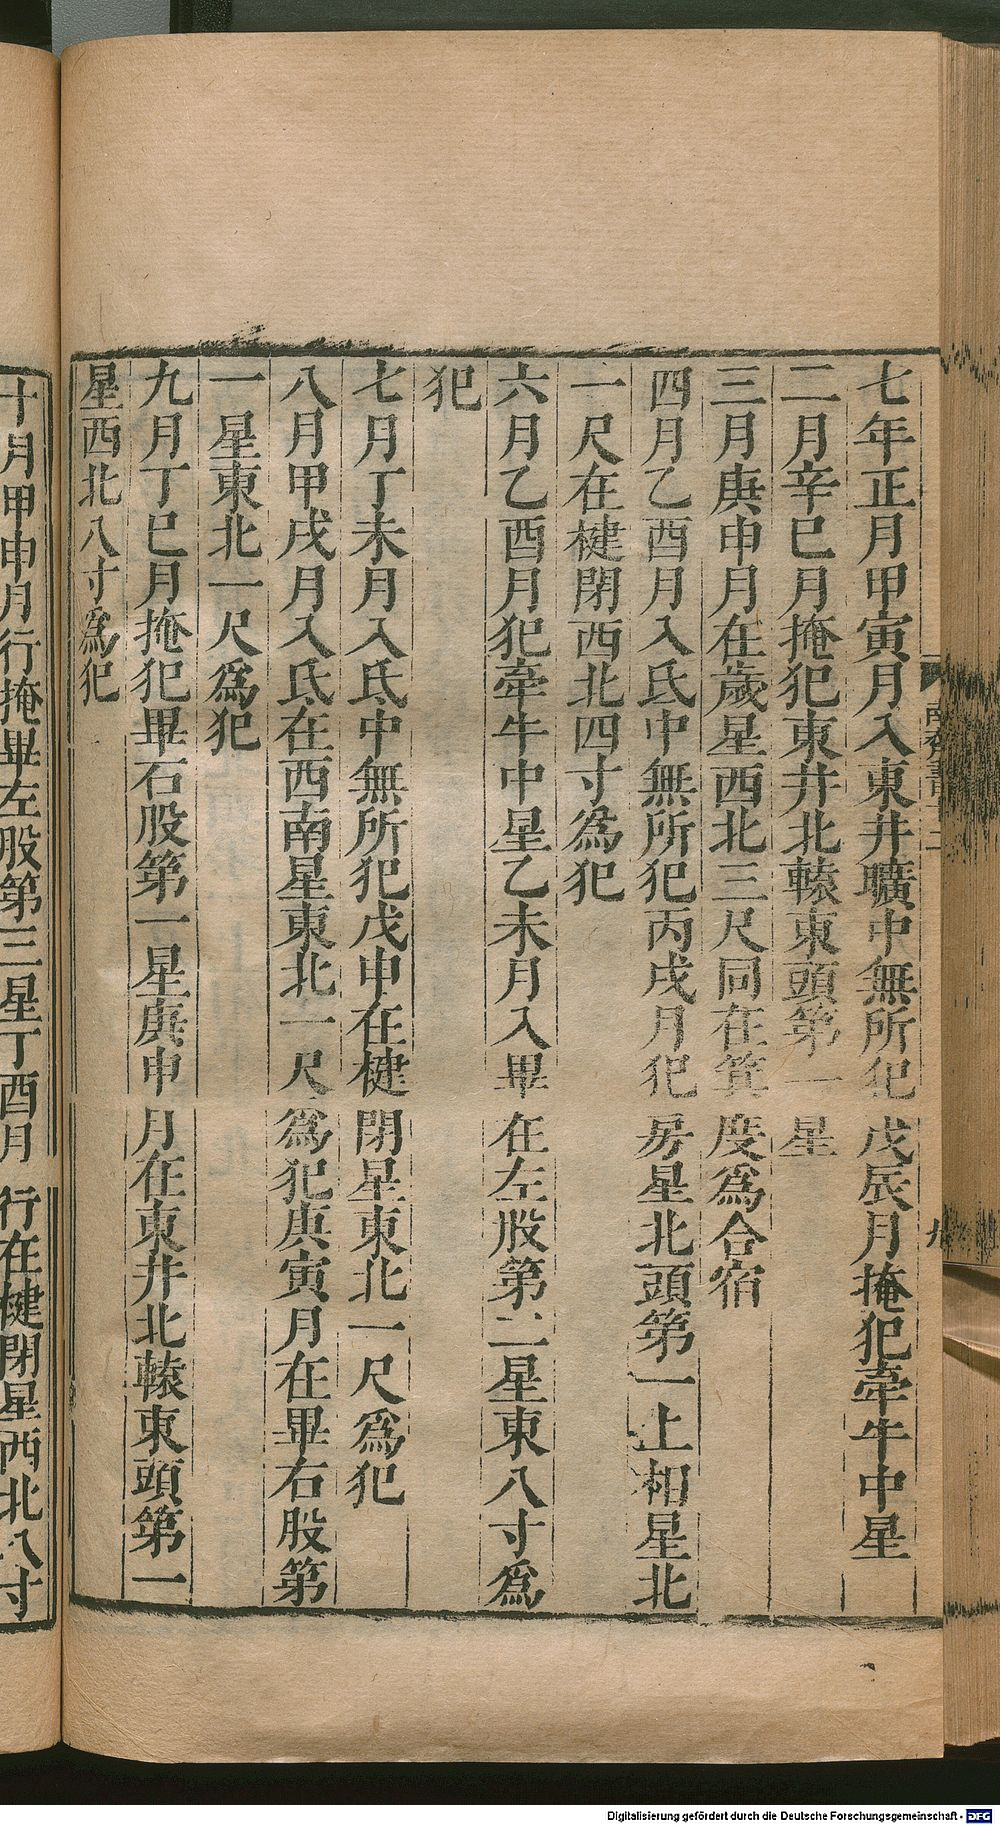 七年正月甲寅月入東井曠中無所犯戊辰月掩犯牽牛中星
二月辛巳月掩犯東井北轅東頭第一星
三月庚申月在歲星西北三尺同在箕度為合宿
四月乙酉月入氐中無所犯丙戌月犯房星北頭第一上相星北
一尺在楗閉西北四寸為犯
六月乙酉月犯牽牛中星乙未月入畢在左股第二星東八寸為
犯
七月丁未月入氐中無所犯戊申在楗閉星東北一尺為犯
八月甲戌月入氐在西南星東北一尺為犯庚寅月在畢右股第
一星東北一尺為犯
九月丁巳月掩犯畢右股第一星庚申月在東井北轅東頭第一
星西北八寸為犯
十月甲申月行掩畢左股第三星丁酉月行在楗閉星西北八寸
九
Digitalisierung gefördert durch die Deutsche Forschungsgemeinschaft - DFG